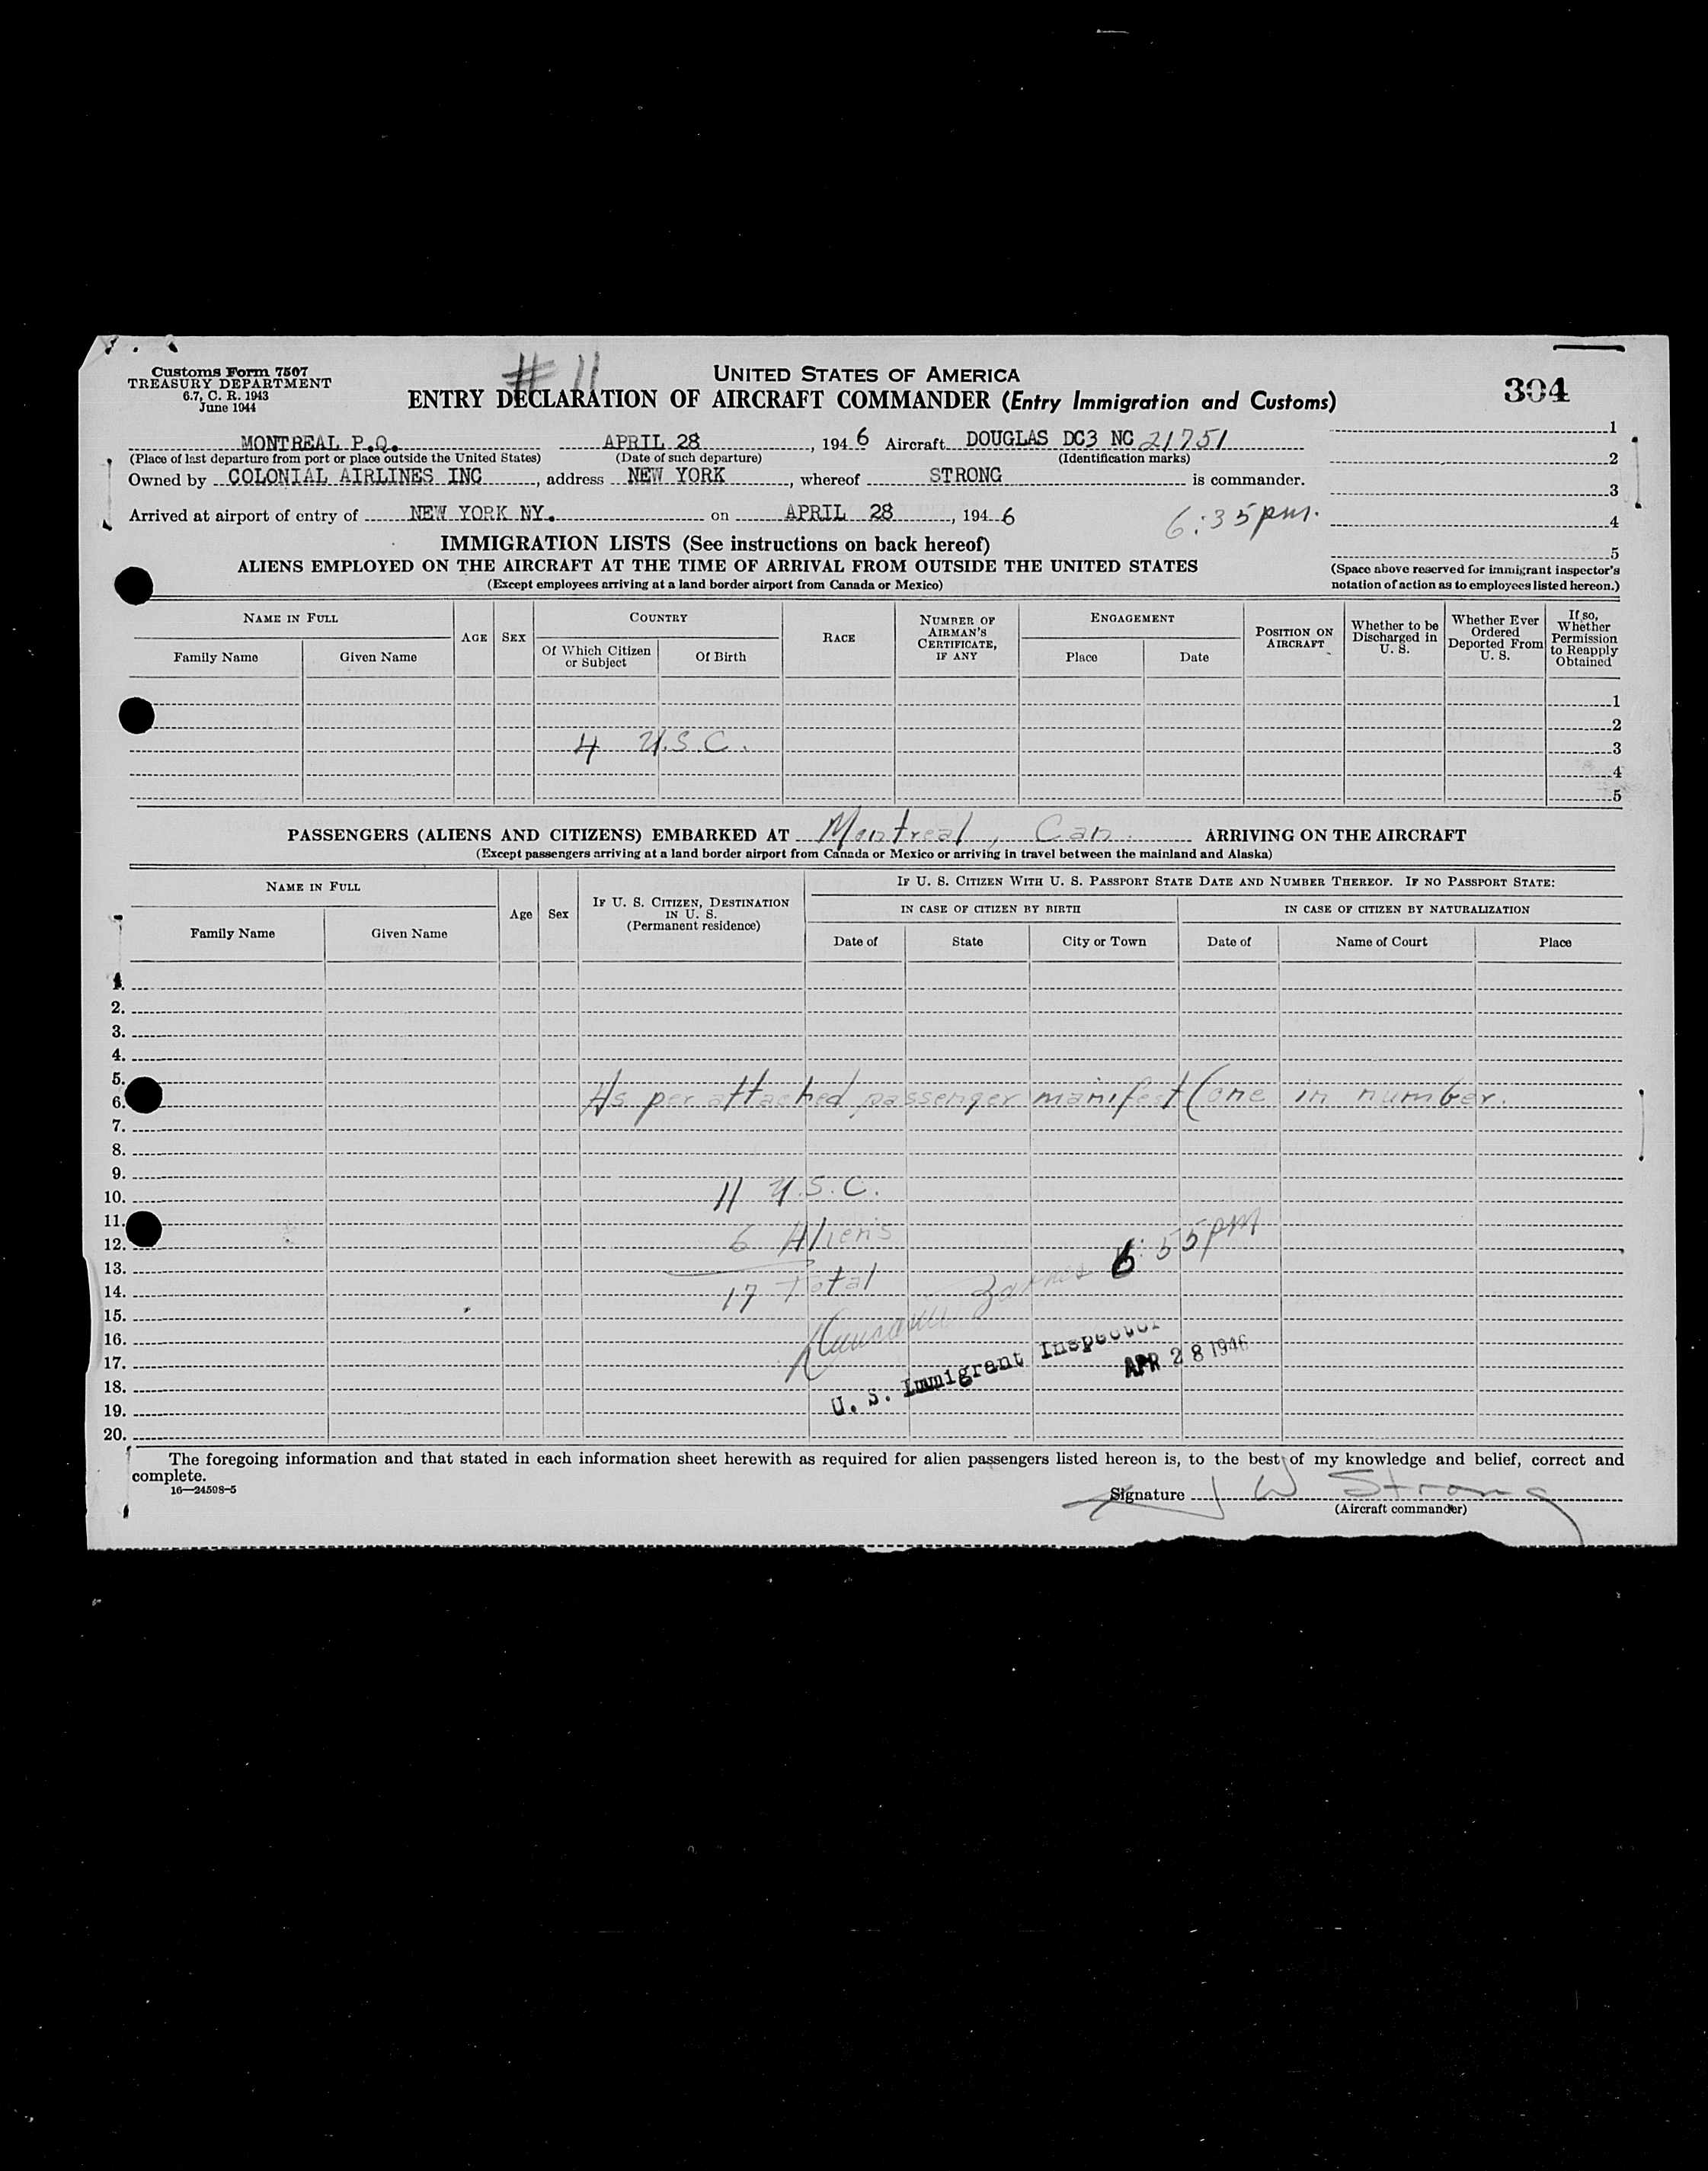 Customs Form 7507
TREASURY DEPARTMENT
6.7, C. R. 1943
June 1944
# 11
UNITED STATES OF AMERICA
ENTRY DECLARATION OF AIRCRAFT COMMANDER (Entry Immigration and Customs)
304
MONTREAL P.Q. APRIL 28, 1946 Aircraft DOUGLAS DC3 NC 21751
(Place of last departure from port or place outside the United States) (Date of such departure) (Identification marks)
Owned by COLONIAL AIRLINES INC, address NEW YORK, whereof STRONG is commander.
Arrived at airport of entry of NEW YORK NY. on APRIL 28, 1946 6:35pm.
1
2
3
4
5
(Space above reserved for immigrant inspector's
notation of action as to employees listed hereon.)
IMMIGRATION LISTS (See instructions on back hereof)
ALIENS EMPLOYED ON THE AIRCRAFT AT THE TIME OF ARRIVAL FROM OUTSIDE THE UNITED STATES
(Except employees arriving at a land border airport from Canada or Mexico)
NAME IN FULL
Family Name Given Name
AGE SEX
COUNTRY
Of Which Citizen or Subject Of Birth
RACE
NUMBER OF AIRMAN'S CERTIFICATE, IF ANY
ENGAGEMENT
Place Date
POSITION ON AIRCRAFT
Whether to be Discharged in U. S.
Whether Ever Ordered Deported From U. S.
If so, Whether Permission to Reapply Obtained
1
2
4 U.S.C. 3
4
5
PASSENGERS (ALIENS AND CITIZENS) EMBARKED AT Montreal, Can. ARRIVING ON THE AIRCRAFT
(Except passengers arriving at a land border airport from Canada or Mexico or arriving in travel between the mainland and Alaska)
NAME IN FULL
Family Name Given Name
Age Sex
IF U. S. CITIZEN, DESTINATION IN U. S. (Permanent residence)
IF U. S. CITIZEN WITH U. S. PASSPORT STATE DATE AND NUMBER THEREOF. IF NO PASSPORT STATE:
IN CASE OF CITIZEN BY BIRTH IN CASE OF CITIZEN BY NATURALIZATION
Date of State City or Town Date of Name of Court Place
1.
2.
3.
4.
5.
6. As per attached passenger manifest (one in number.
7.
8.
9.
10. 11 U.S.C.
11.
12. 6 Aliens
13. 6:55pm
14. 17 Total
15.
16. Barnes
17. U. S. Immigrant Inspector
18. APR 28 1946
19.
20.
The foregoing information and that stated in each information sheet herewith as required for alien passengers listed hereon is, to the best of my knowledge and belief, correct and
complete.
16—24598-5
Signature J W Strong
(Aircraft commander)